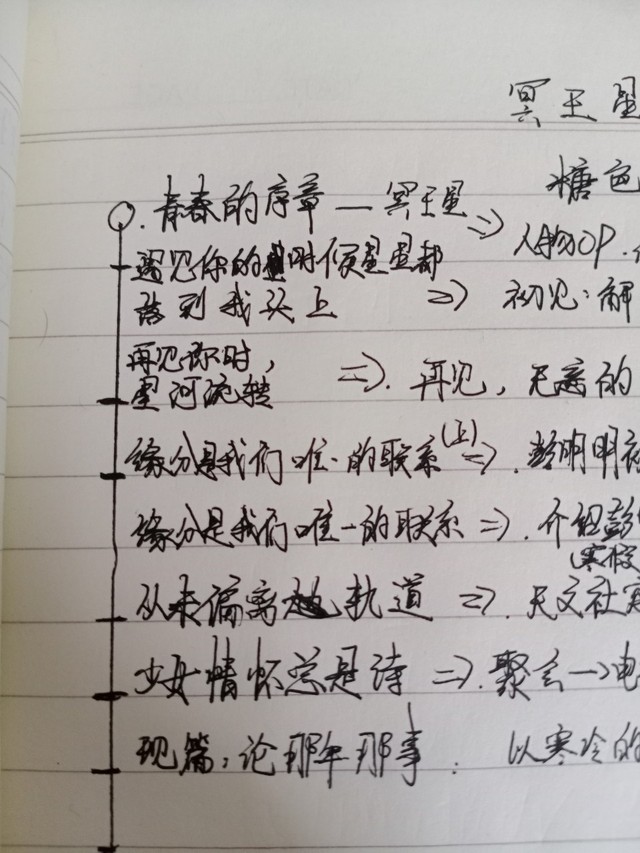 冥王星
糖色
青春的序章—冥王星 =>
人物OP.
遇见你的时候星星都
落到我头上 => 初见:解
再见你时,
星河流转 => 再见,无离的
缘分是我们唯一的联系(上) => 彭明明被
缘分是我们唯一的联系 => 介绍彭
(寒假
从未偏离 轨道 => 天文社寒
少女情怀总是诗 => 聚会→电
现篇:论那年那事. 以寒冷的